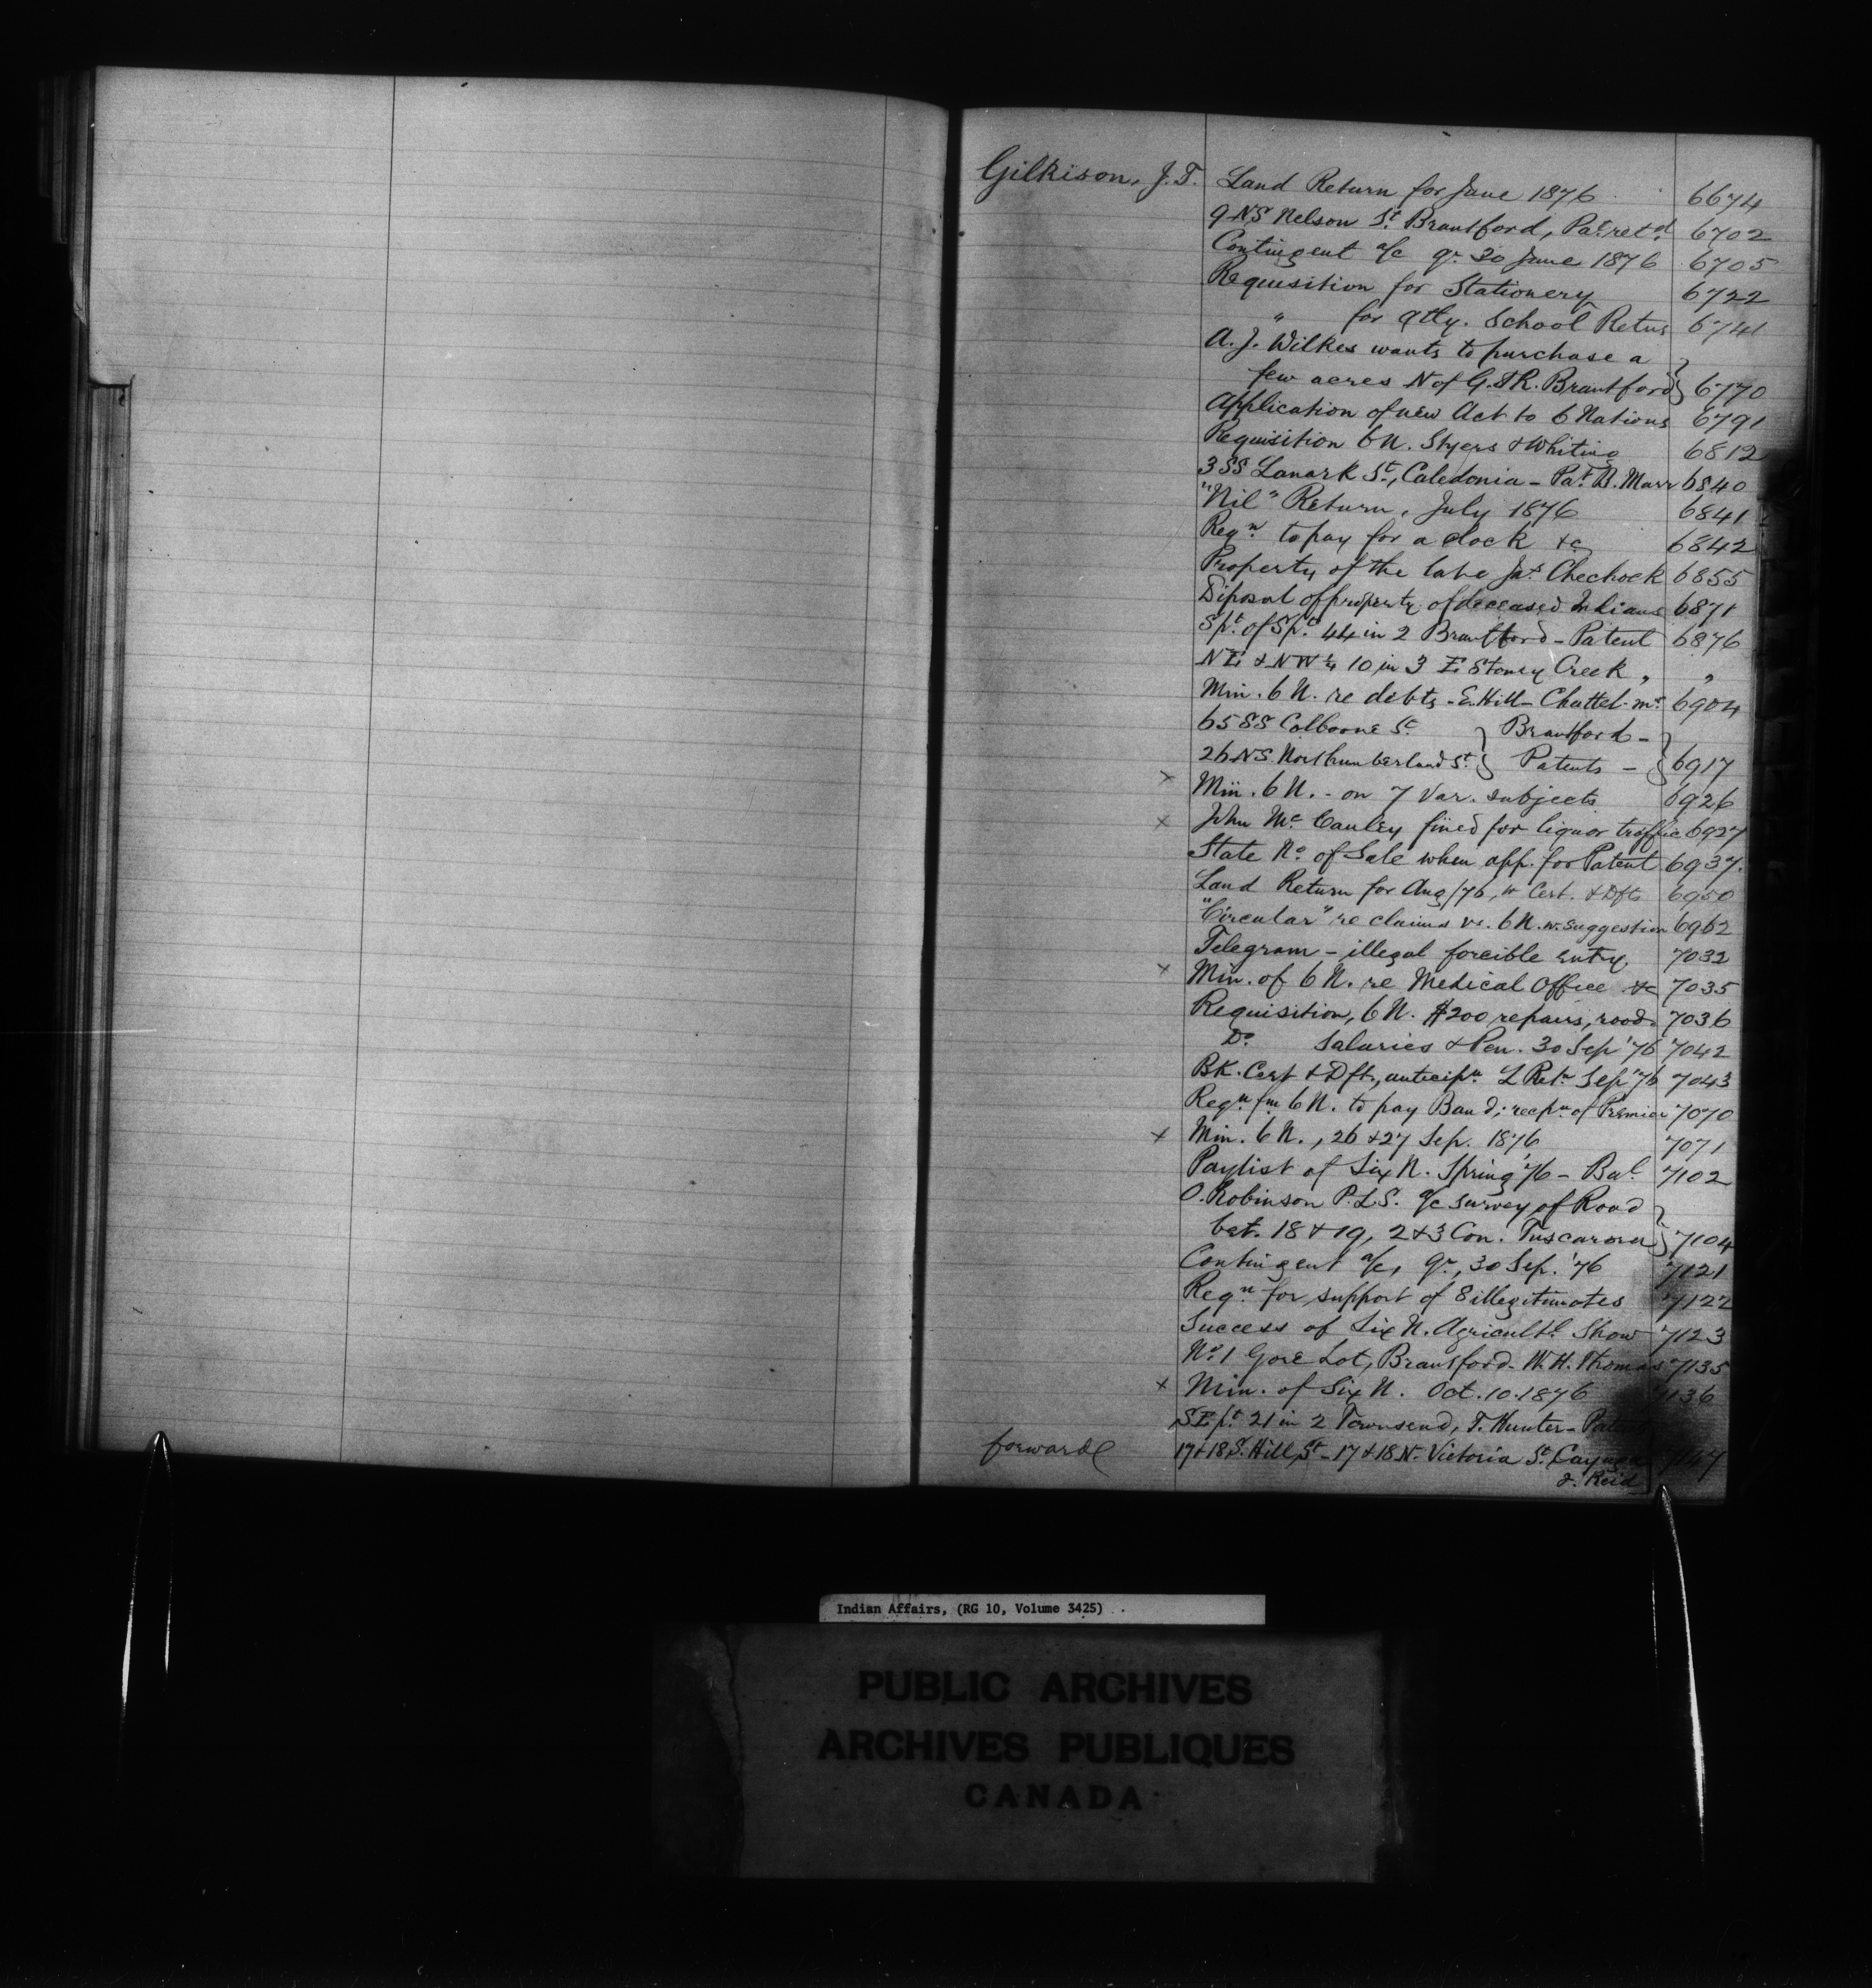 Gilkison, J.T. Land Return for June 1876 6674
9 NS Nelson St. Brantford, Pat. retd. 6702
Contingent a/c qr. 30 June 1876 6705
Requisition for Stationery 6722
" for qtly. School Retns 6741
A. J. Wilkes wants to purchase a
few acres N of G.T.R. Brantford } 6770
Application of new Act to 6 Nations 6791
Requisition 6 N. Styers & Whiting 6812
3 SS Lanark St., Caledonia - Pat. B. Marr 6840
"Nil" Return, July 1876 6841
Reqn. to pay for a clock &c 6842
Property of the late Jas. Chechock 6855
Disposal of property of deceased Indians 6871
Spt. of Spt. 44 in 2 Brantford - Patent 6876
NE & NW ¼ 10 in 3 E. Stoney Creek " "
Min. 6 N. re debts - E. Hill - Chattel mt. 6904
65 SS Colborne St. } Brantford -
26 NS Northumberland St. } Patents - } 6917
x Min. 6 N. - on 7 var. subjects 6926
x John McCauley fined for liquor traffic 6927
State No. of Sale when app. for Patent 6937.
Land Return for Aug/76, w Cert. & Dft 6950
"Circular" re claims vs. 6 N. w. suggestion 6962
Telegram - illegal forcible entry. 7032
x Min. of 6 N. re Medical Office &c 7035
Requisition, 6 N. $200 repairs, roads 7036
Do. Salaries & Pen. 30 Sep '76 7042
BK. Cert & Dft., anticipn. L Retn Sep '76 7043
Reqn fm 6 N. to pay Band; recpn of Premier 7070
x Min. 6 N., 26 & 27 Sep. 1876 7071
Paylist of Six N. Spring '76 - Bal. 7102
O. Robinson P.L.S. a/c survey of Road
bet. 18 & 19, 2 & 3 Con. Tuscarora } 7104
Contingent a/c, qr., 30 Sep. '76 7121
Reqn for support of 8 illegitimates 7122
Success of Six N. Agricultl. Show 7123
No. 1 Gore Lot, Brantford - W. H. Thomas 7135
x Min. of Six N. Oct. 10. 1876 7136
SE pt. 21 in 2 Townsend, T. Hunter - Patent
forward 17 & 18 S. Hill St - 17 & 18 N. Victoria St. Cayuga 7147
J. Reid
Indian Affairs, (RG 10, Volume 3425)
PUBLIC ARCHIVES
ARCHIVES PUBLIQUES
CANADA